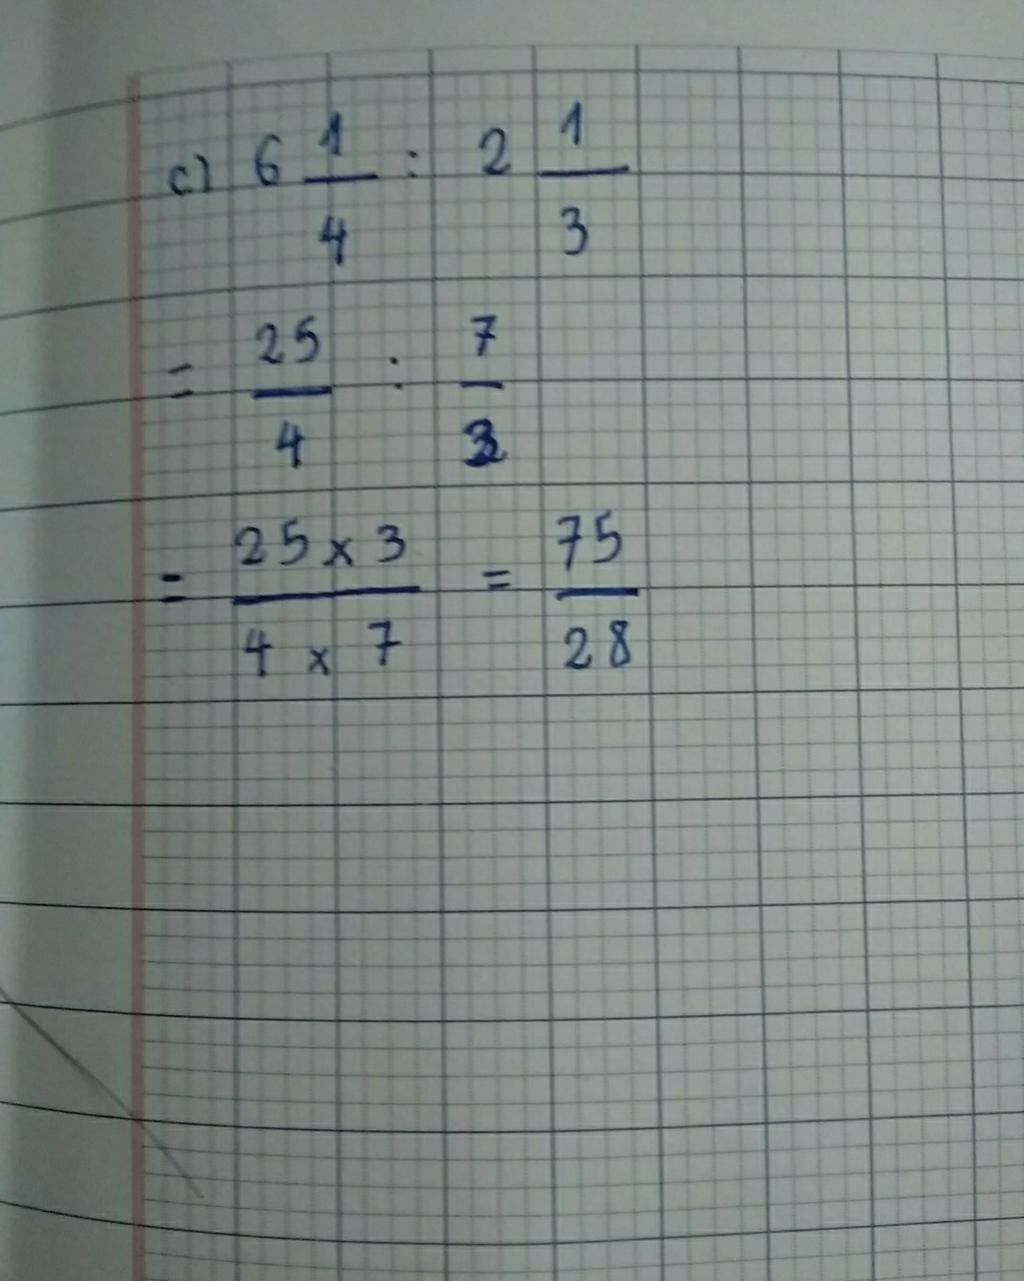 c) 6 1/4 : 2 1/3
= 25/4 : 7/3
= 25 x 3 / 4 x 7 = 75/28